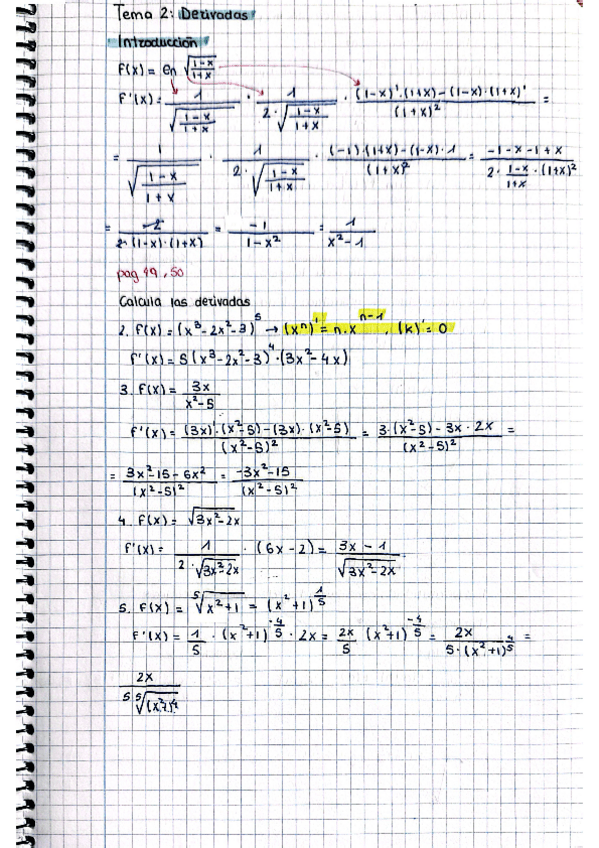 Tema 2: Derivadas
Introducción
f(x) = en √((1-x)/(1+x))
f'(x) = 1/√((1-x)/(1+x)) · 1/(2·√((1-x)/(1+x))) · ((1-x)'·(1+x)-(1-x)·(1+x)')/(1+x)² =
= 1/√((1-x)/(1+x)) · 1/(2·√((1-x)/(1+x))) · ((-1)·(1+x)-(1-x)·1)/(1+x)² = (-1-x-1+x)/(2·(1-x)/(1+x)·(1+x)²)
= -2/(2·(1-x)·(1+x)) = -1/(1-x²) = 1/(x²-1)
pag 49, 50
Calcula las derivadas
2. f(x) = (x³-2x²-3)⁵ → (xⁿ)' = n·xⁿ⁻¹, (k)' = 0
f'(x) = 5(x³-2x²-3)⁴·(3x²-4x)
3. f(x) = 3x/(x²-5)
f'(x) = ((3x)'·(x²-5)-(3x)·(x²-5))/(x²-5)² = (3·(x²-5)-3x·2x)/(x²-5)² =
= (3x²-15-6x²)/(x²-5)² = (-3x²-15)/(x²-5)²
4. f(x) = √(3x²-2x)
f'(x) = 1/(2·√(3x²-2x)) · (6x-2) = (3x-1)/√(3x²-2x)
5. f(x) = ⁵√(x²+1) = (x²+1)^(1/5)
f'(x) = 1/5·(x²+1)^(-4/5)·2x = 2x/5 (x²+1)^(-4/5) = 2x/(5·(x²+1)^(4/5)) =
2x/(5 ⁵√(x²+1)⁴)